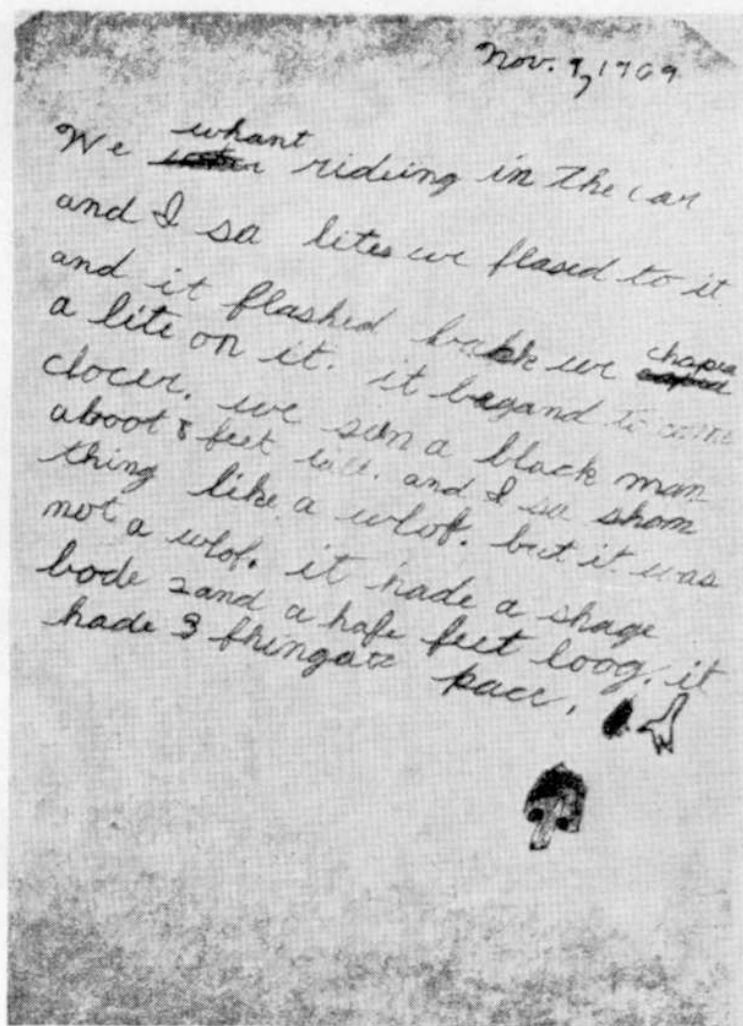 Nov. 9, 1969
whant
We riding in the car
and I sa lites we flased to it
and it flashed back we
a lite on it. it begand to come
clocer. we sun a black man
aboot 8 feet tall. and I sa shom
thing like a wlof. but it was
not a wlof. it hade a shage
bode 2 and a hafe feet loog. it
hade 3 fhingate pacr.